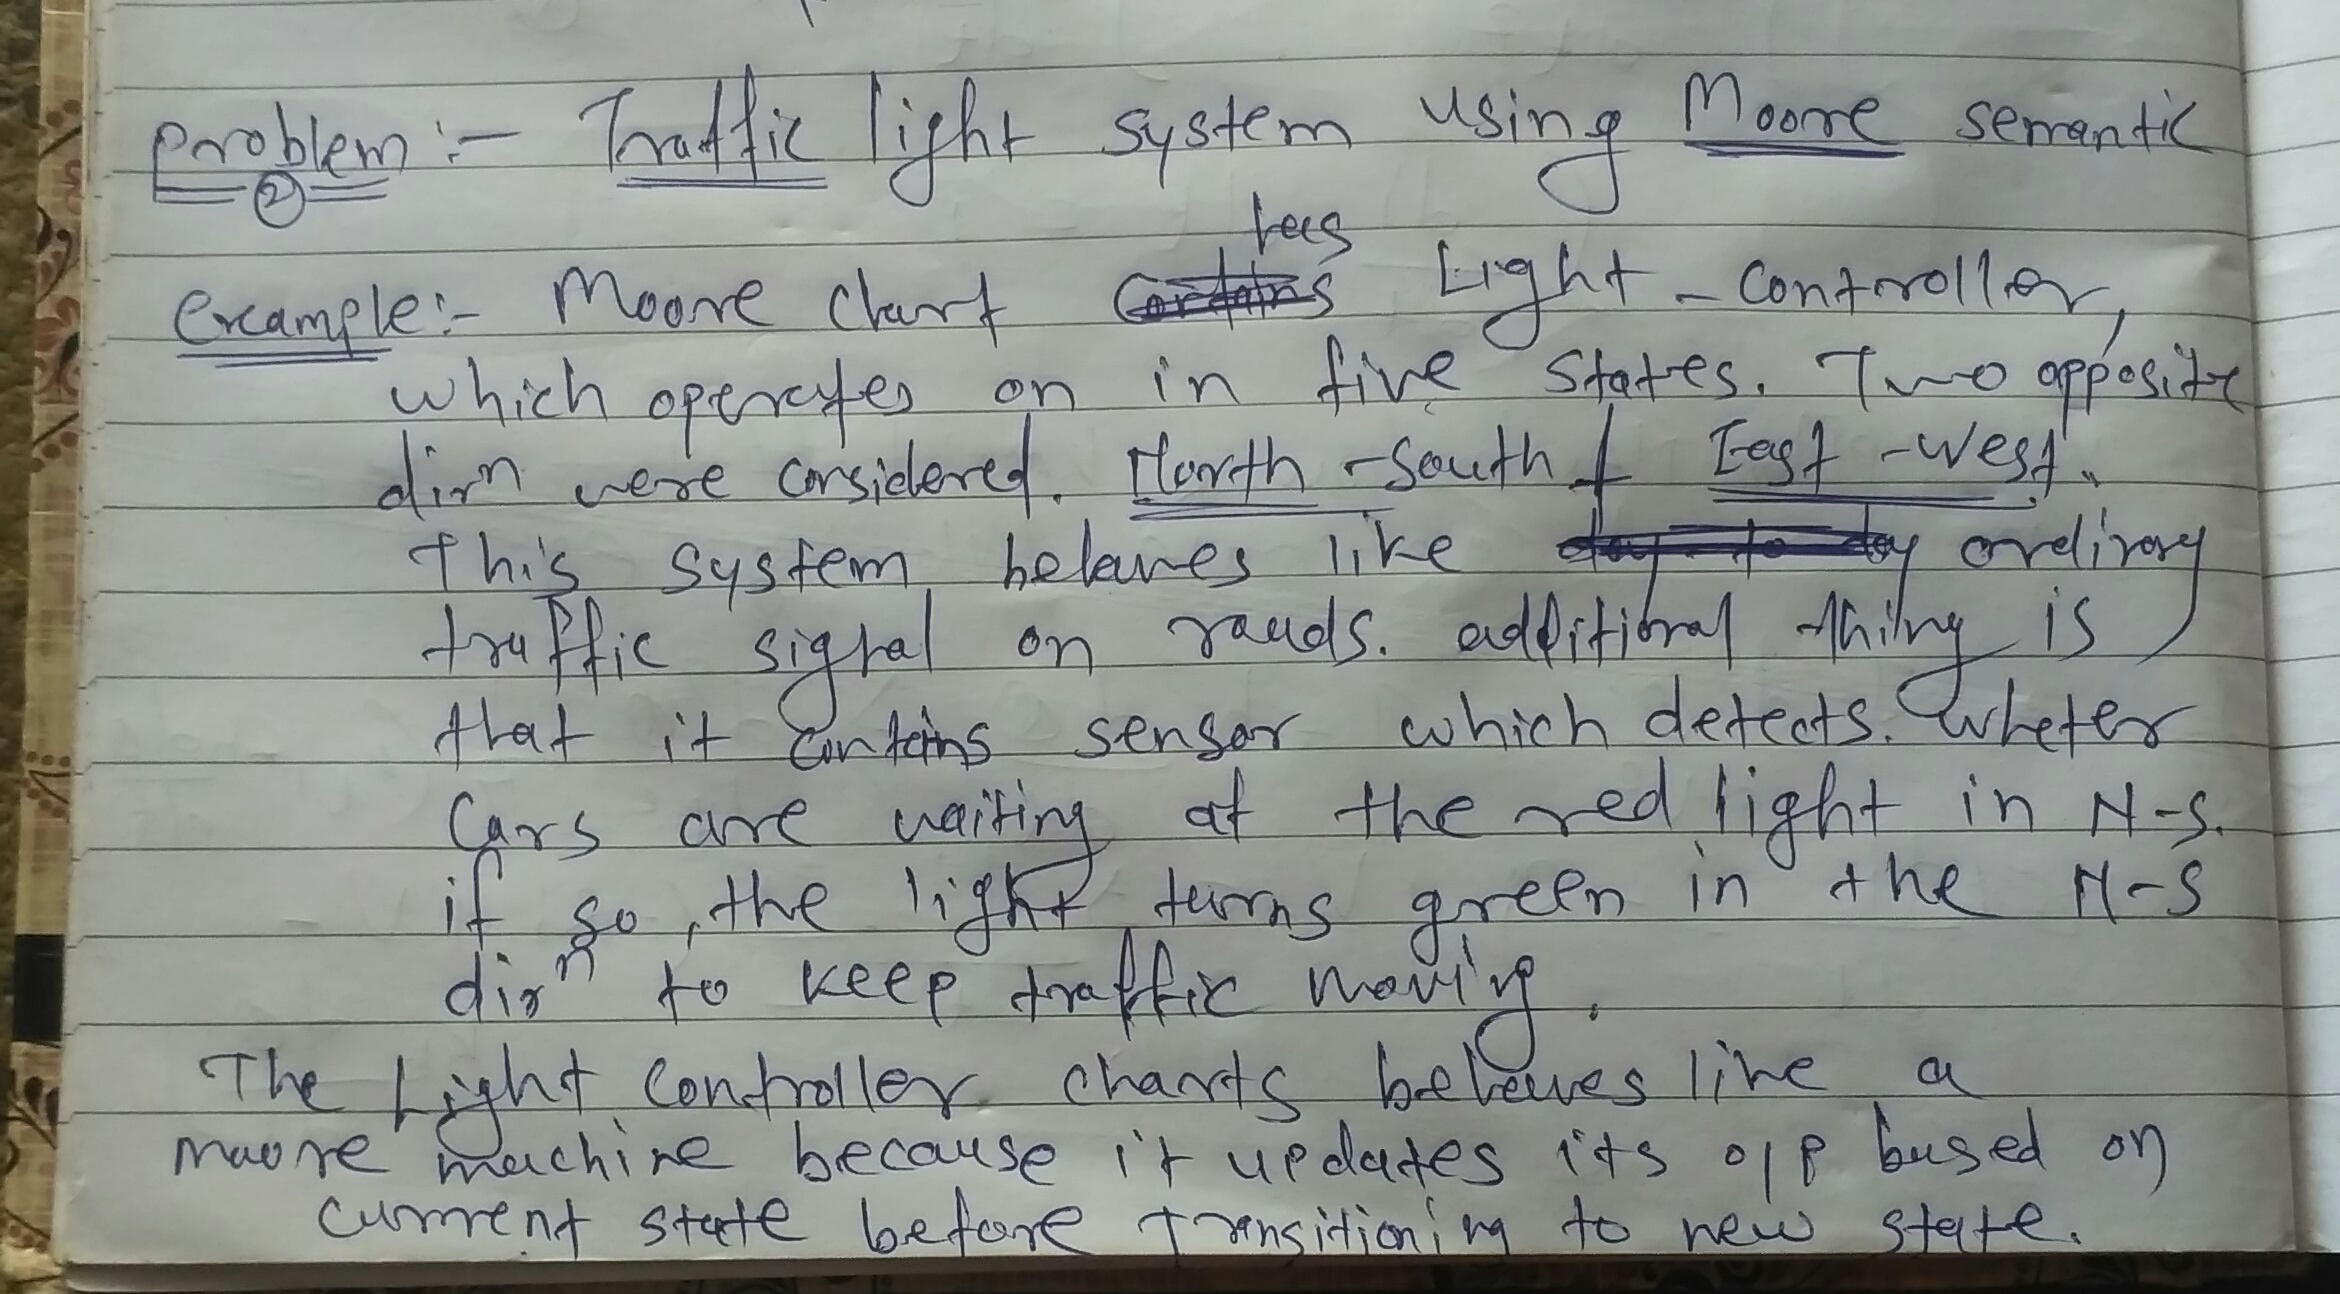 Problem :- Traffic light system using Moore semantic
②
has
Example:- Moore chart Contains Light - Controller,
which operates on in five states. Two opposite
dirn were considered. North - South & East - West.
This system behaves like day to day ordinary
traffic signal on roads. additional thing is
that it contains sensor which detects. wheter
Cars are waiting at the red light in N-S.
if so, the light turns green in the N-S
dirⁿ to keep traffic moving.
The Light Controller charts behaves like a
moore machine because it updates its o/p based on
current state before transitioning to new state.